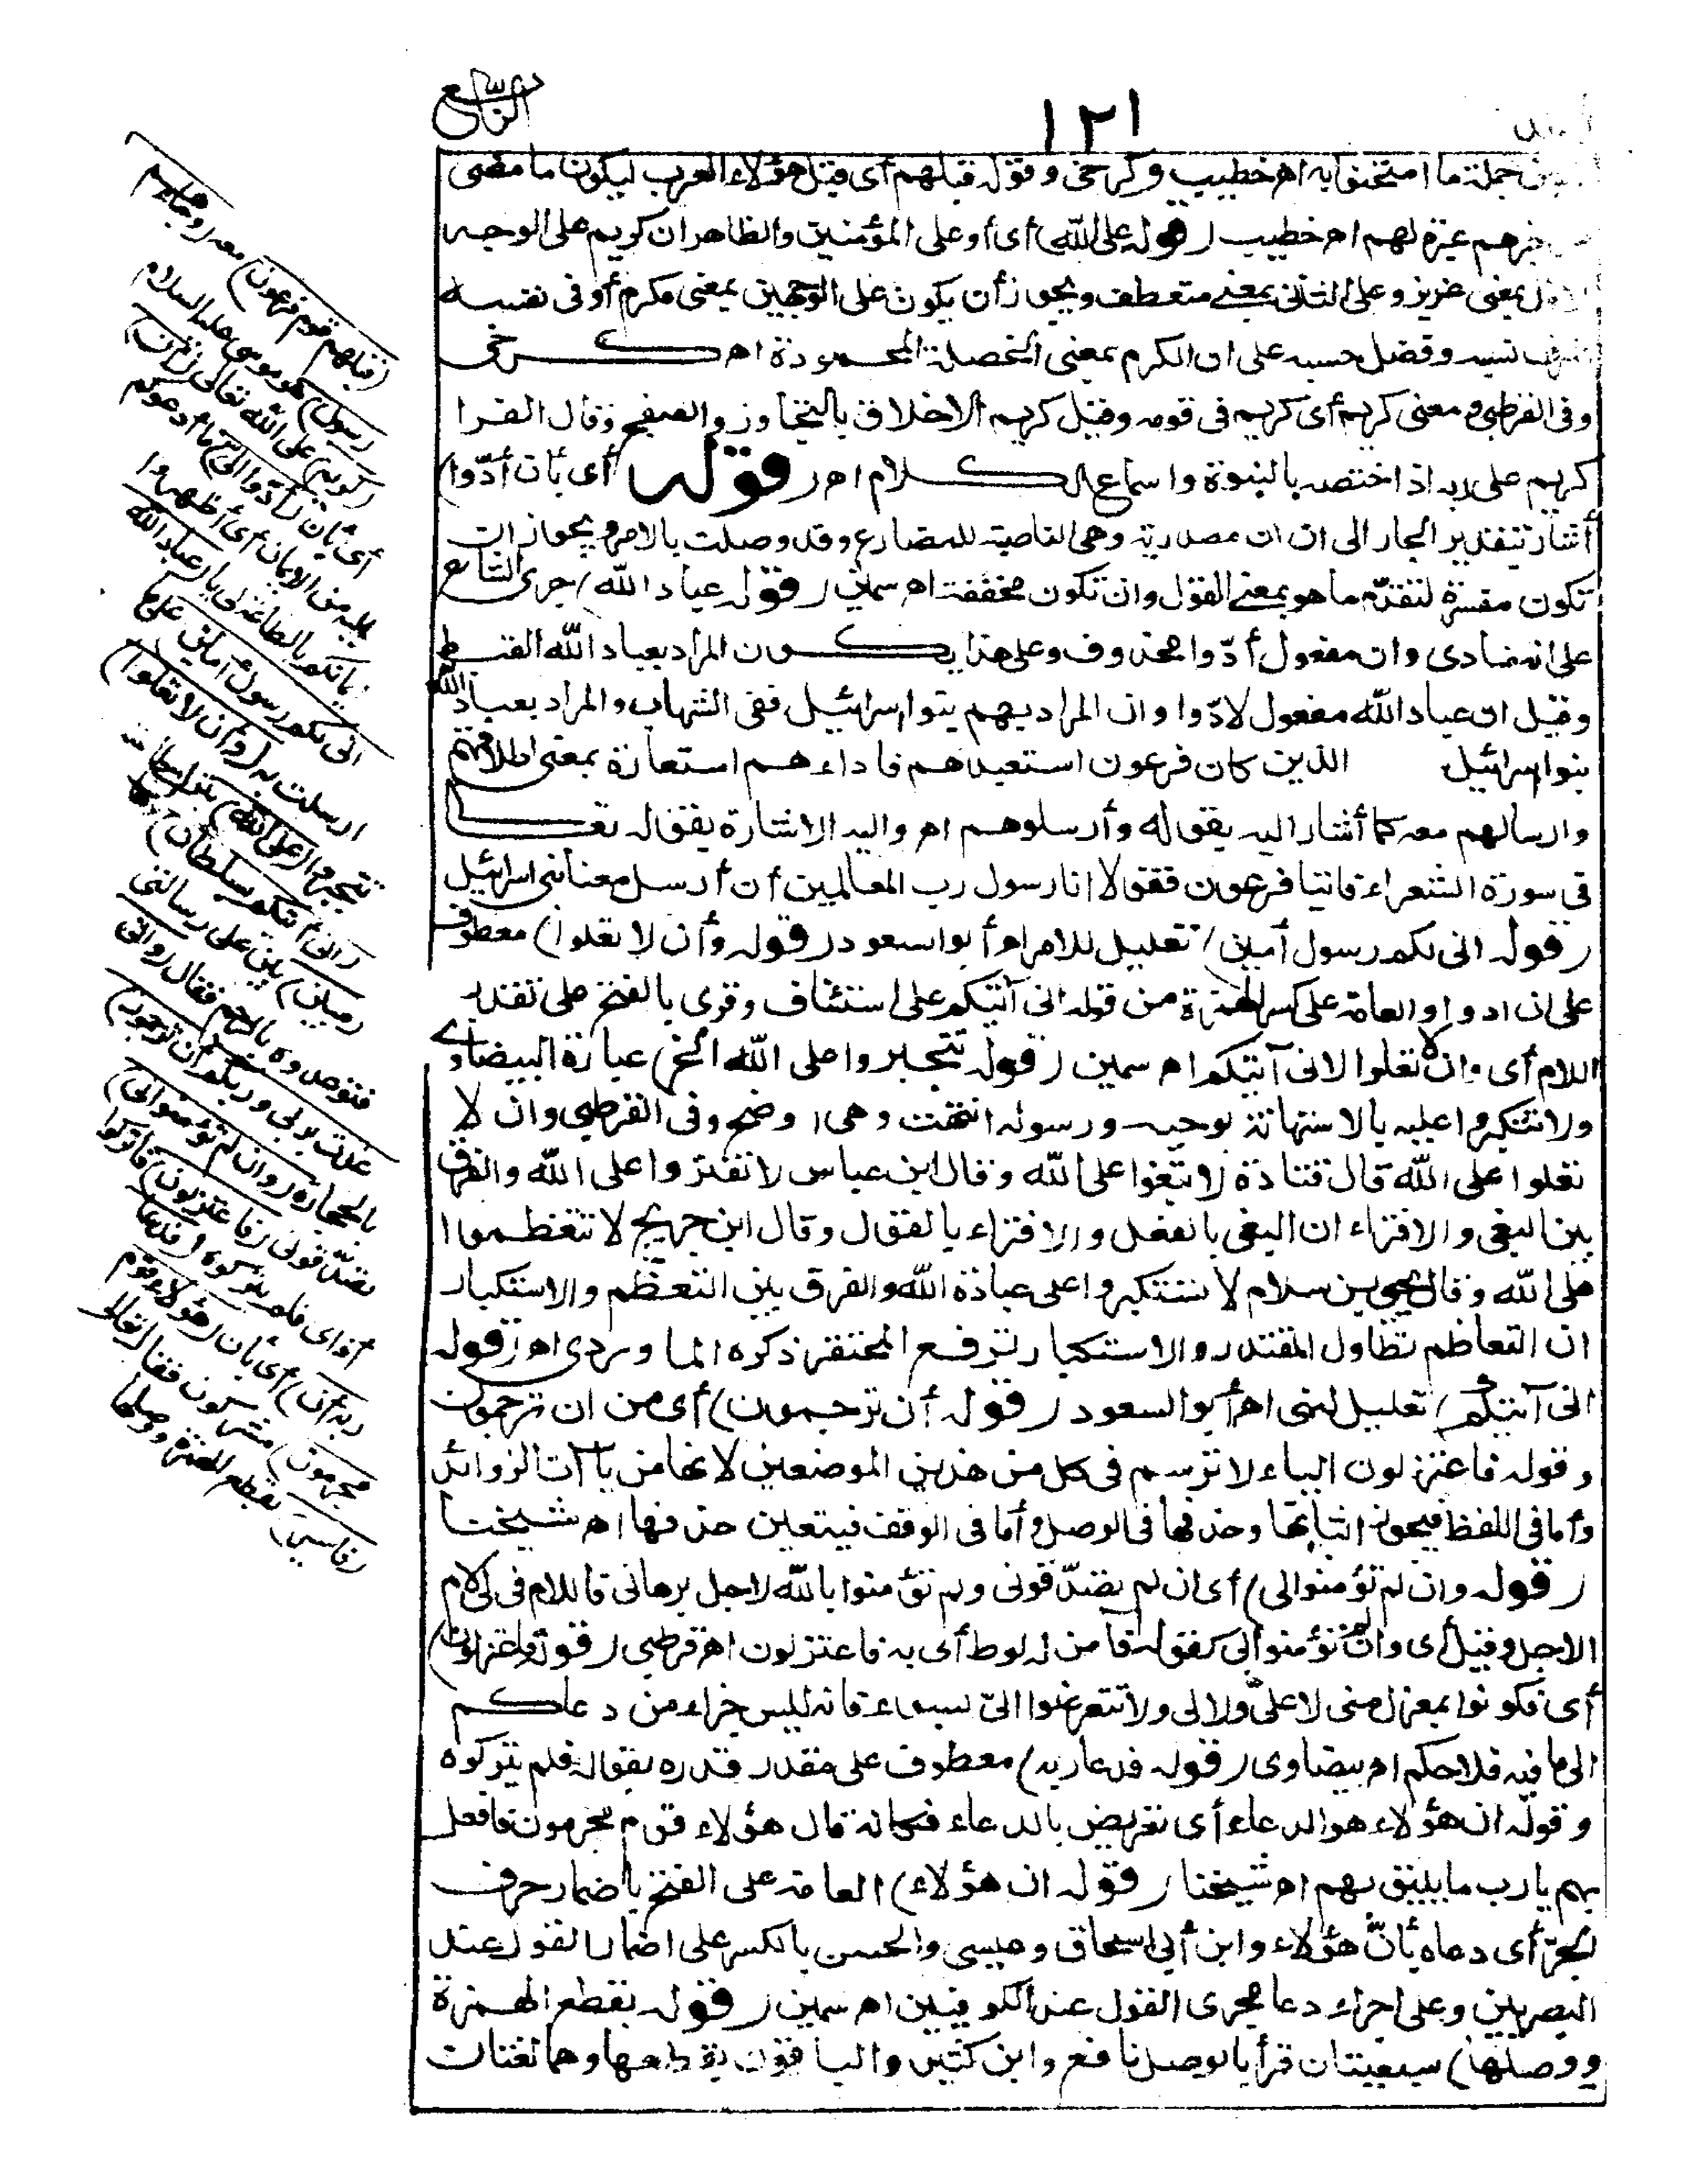 الرابع
١٢١
من جملة ما امتحنوا به اهر خطيب وكرخى وقوله قبلهم أى قبل هؤلاء العرب ليكون ما مضى
خبرهم عبرة لهم اهر خطيب (قوله على الله) أى أو على المؤمنين والظاهر ان كريم على الوجه
الاول بمعنى عزيز وعلى الثانى بمعنى متعطف ويجوز أن يكون على الوجهين بمعنى مكرم أو فى نفسه
شرف نسبه وفضل حسبه على ان الكرم بمعنى الخصلة المحمودة اهر كرخى
وفى القرطبى ومعنى كريم أى كريم فى قومه وقيل كريم الاخلاق بالتجاوز والصفح وقال الفرا
كريم على ربه اذ اختصه بالنبوة واسماع الكلام اهر (قوله أى بأن أدّوا)
أشار بتقدير الجار الى ان ان مصدرية وهى الناصبة للمضارع وقد وصلت بالامر ويجوز ان
تكون مفسرة لتقدّم ما هو بمعنى القول وان تكون مخففة اهر سمين (قوله عباد الله) جرى الشارح
على انه منادى وان مفعول أدّوا محذوف وعلى هذا يكون المراد بعباد الله القبط
وقيل ان عباد الله مفعول لادّوا وان المراد بهم بنو اسرائيل ففى الشهاب والمراد بعباد الله
بنوا سرائيل الذين كان فرعون استعبدهم فاداءهم استعارة بمعنى اطلاقهم
وارسالهم معه كما أشار اليه بقوله وأرسلوهم اهر واليه الاشارة بقوله تعالى
فى سورة الشعراء فاتيا فرعون فقولا انا رسول رب العالمين أن أرسل معنا بنى اسرائيل
(قوله انى لكم رسول أمين) تعليل للامر اهر أبو السعود (قوله وأن لا تعلوا) معطوف
على ان ادوا والعامة على كسر الهمزة من قوله انى آتيكم على استئناف وقرى بالفتح على تقدير
اللام أى وان لا تعلوا لانى آتيكم اهر سمين (قوله تتجبروا على الله الخ) عبارة البيضاوى
ولا تتكبروا عليه بالاستهانة بوحيه ورسوله انتهت وهى اوضح وفى القرطبى وان لا
تعلوا على الله قال قتادة لا تبغوا على الله وقال ابن عباس لا تفتروا على الله والفرق
بين البغى والافتراء ان البغى بالفعل والافتراء بالقول وقال ابن جريج لا تتعظموا
على الله وقال يحيى بن سلام لا تستكبروا على عبادة الله والفرق بين التعظم والاستكبار
ان التعاظم تطاول المقتدر والاستكبار ترفع المحتقر ذكره الماوردى اهر (قوله
انى آتيكم) تعليل للنهى اهر أبو السعود (قوله أن ترجمون) أى من ان ترجمون
وقوله فاعتزلون الياء لا ترسم فى كل من هذين الموضعين لانها من ياآت الزوائد
وأما فى اللفظ فيجوز اثباتها وحذفها فى الوصل وأما فى الوقف فيتعين حذفها اهر شيخنا
(قوله وان لم تؤمنوا لى) أى ان لم تصدّقونى ولم تؤمنوا بالله لاجل برهانى فاللام فى لى لام
الاجل وقيل أى وان لم تؤمنوا لى كقوله فآمن له لوط أى به فاعتزلون اهر قرطبى (قوله فاعتزلون)
أى فكونوا بمعزل منى لا علىّ ولا لى ولا تتعرضوا الىّ بسوء فانه ليس جزاء من دعاكم
الى ما فيه فلاحكم اهر بيضاوى (قوله فدعا ربه) معطوف على مقدر قدره بقوله فلم يتركوه
وقوله ان هؤلاء هو الدعاء أى تعريض بالدعاء فكانه قال هؤلاء قوم مجرمون فافعل
بهم يا رب ما يليق بهم اهر شيخنا (قوله ان هؤلاء) العامة على الفتح باضمار حرف
الجرّ أى دعاه بأنّ هؤلاء وابن أبى اسحاق وعيسى والحسن بالكسر على اضمار القول عند
البصريين وعلى اجراء دعا مجرى القول عند الكوفيين اهر سمين (قوله بقطع الهمزة
ووصلها) سبعيتان قرأ بالوصل نافع وابن كثير والباقون بقطعها وهما لغتان
(قبلهم قوم فرعون) معه (وجاءهم
رسول) هو موسى عليه السلام
(كريم) على الله تعالى (أن)
أى بأن (أدّوا الىّ) ما أدعوكم
اليه من الايمان أى أظهروا
ايمانكم بالطاعة لى يا (عباد الله
انى لكم رسول أمين) على ما
ارسلت به (وأن لا تعلوا)
تتجبروا (على الله) بترك طاعته
(انى آتيكم بسلطان)
(مبين) بيّن على رسالتى
فتوعدوه بالرجم فقال (وانى
عذت بربى وربكم أن ترجمون)
بالحجارة (وان لم تؤمنوا لى)
تصدّقونى (فاعتزلون) فاتركوا
أذاى فلم يتركوه (فدعا
ربه أن) أى بأن (هؤلاء قوم
مجرمون) مشركون فقال تعالى
(فاسر) بقطع الهمزة ووصلها